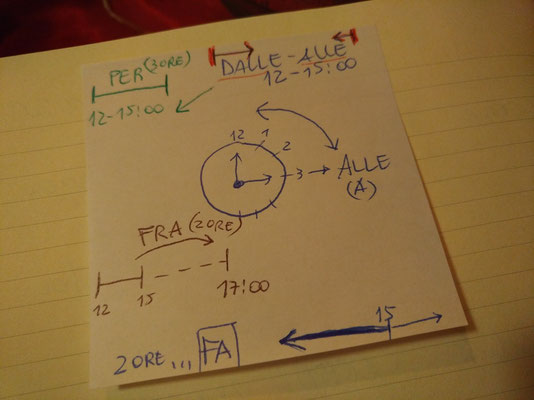 PER (3 ORE)
12-15:00
DALLE - ALLE
12-15:00
12 1 2 3
ALLE
(A)
FRA (2 ORE)
12 15 17:00
15
2 ORE ... FA